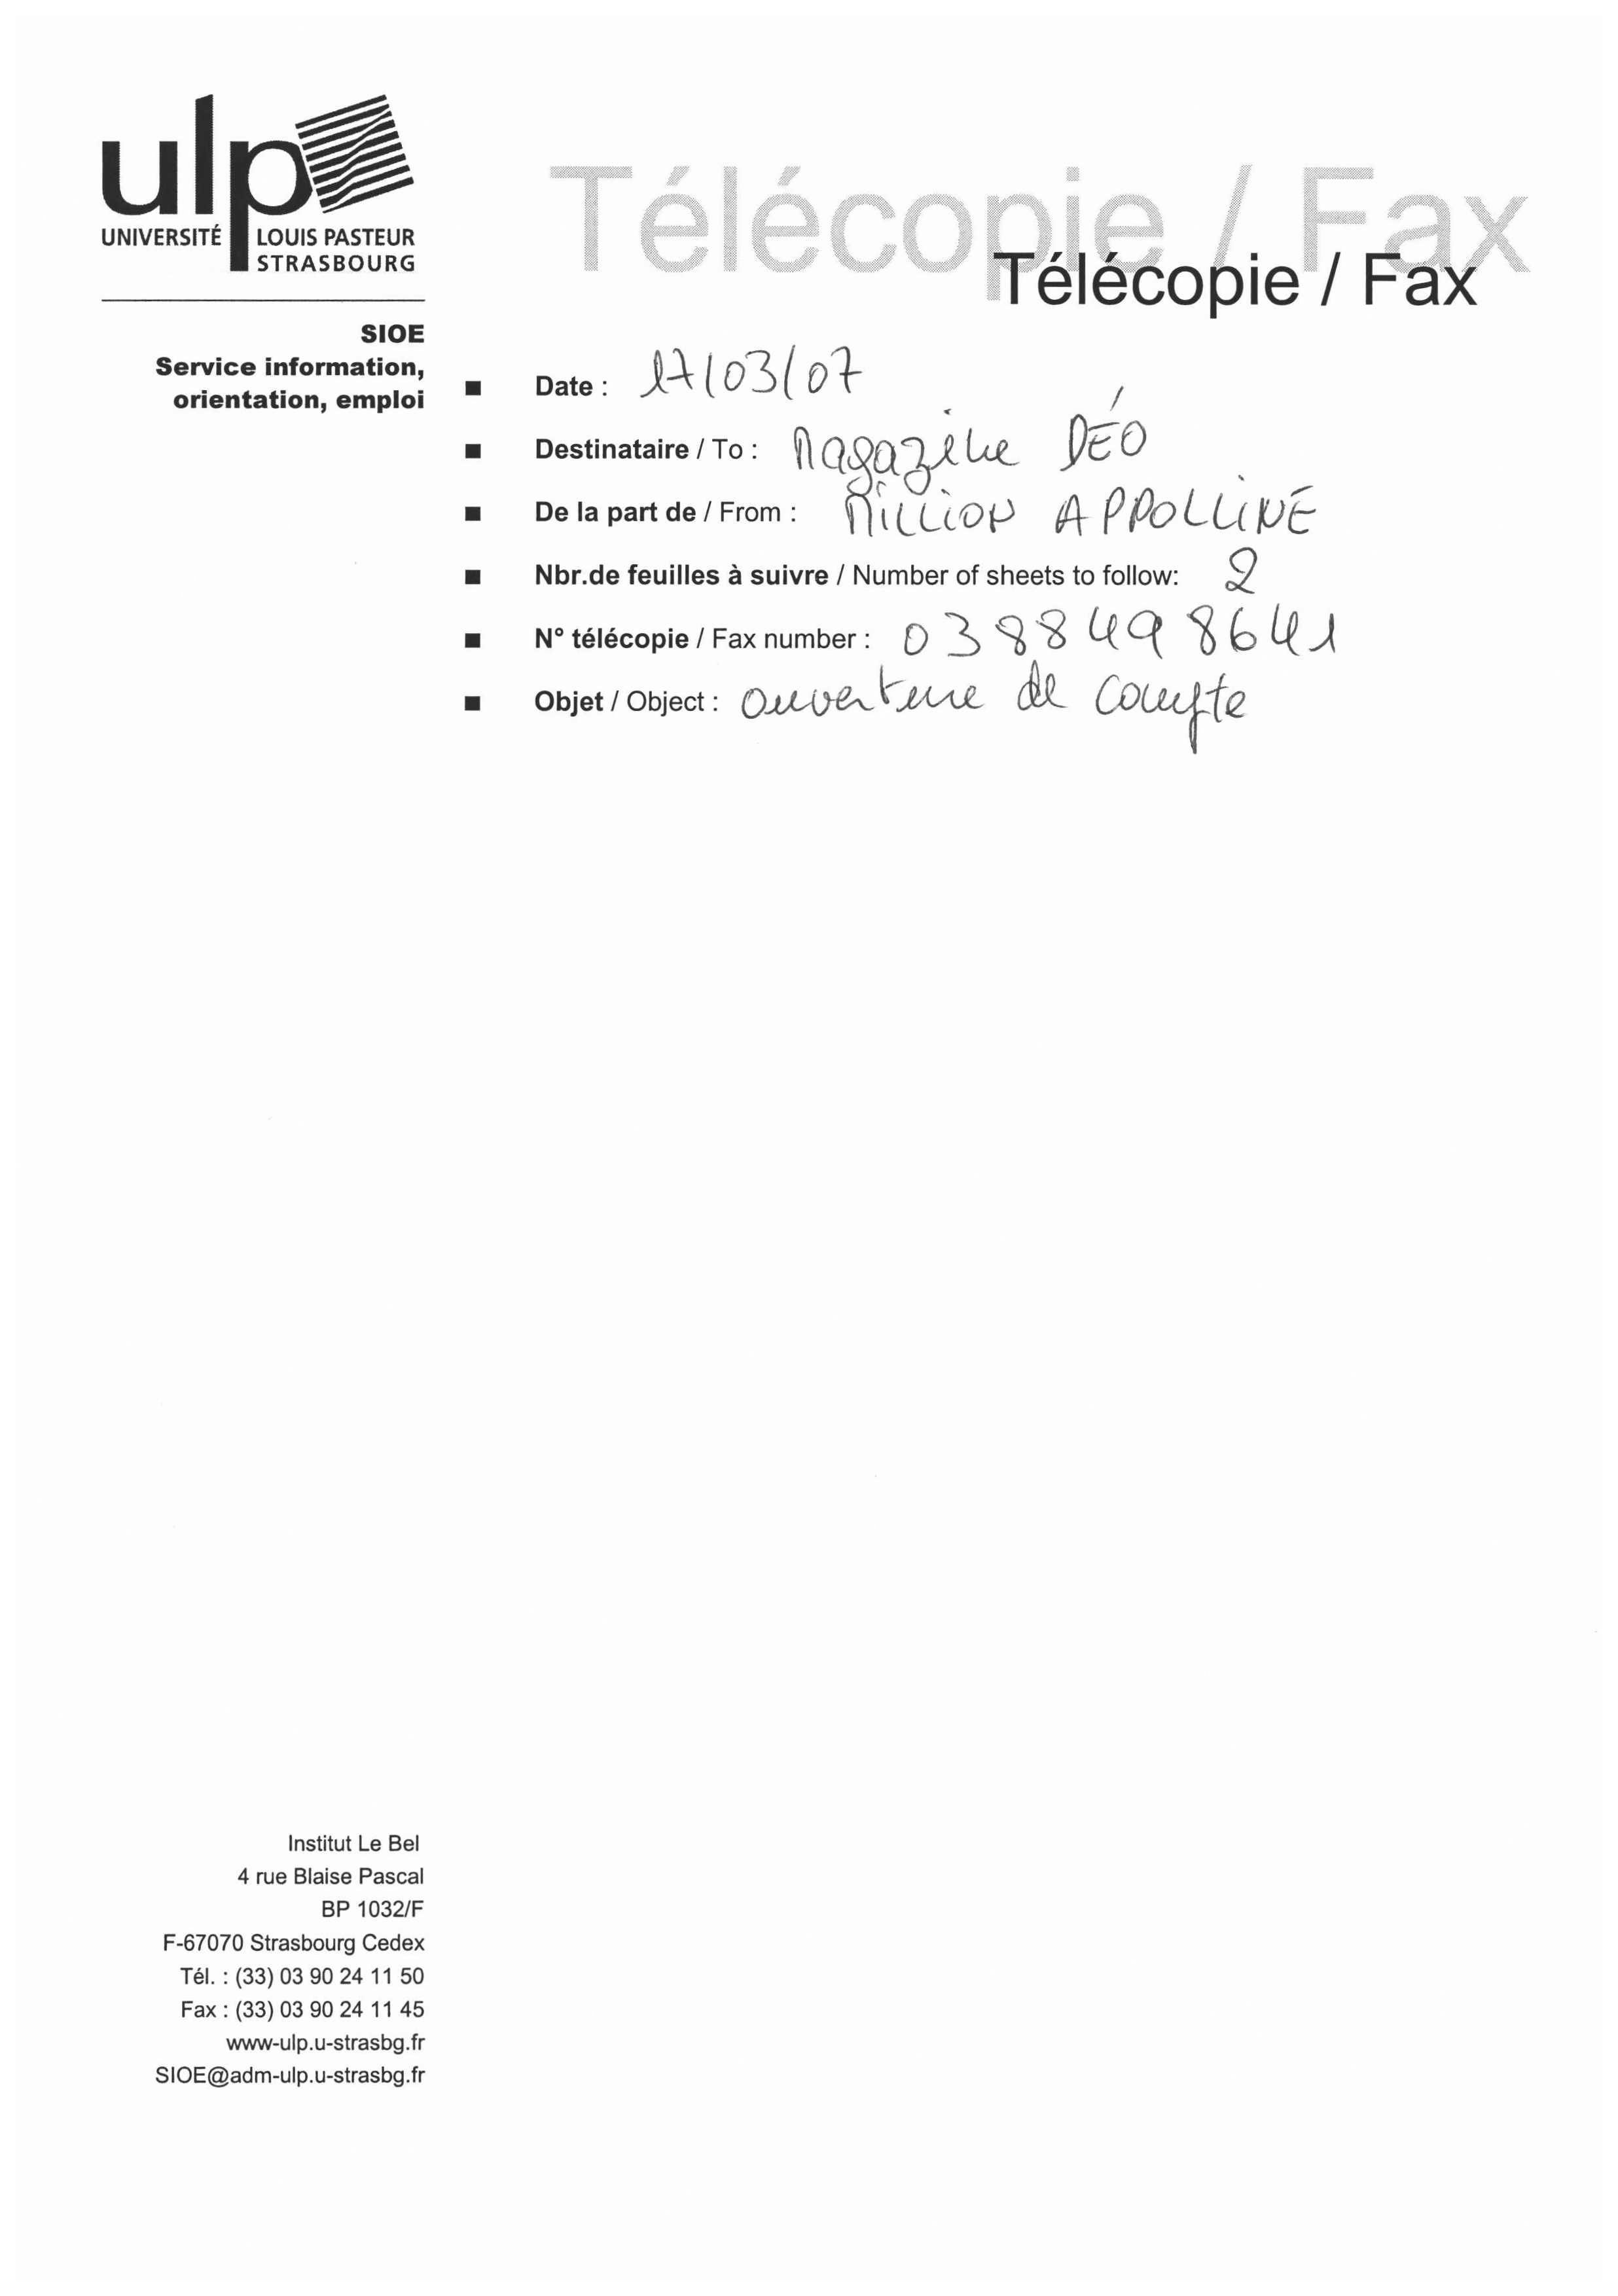 ulp
UNIVERSITÉ LOUIS PASTEUR
STRASBOURG
Télécopie / Fax
Télécopie / Fax
SIOE
Service information,
orientation, emploi
Date : 17/03/07
Destinataire / To : Magazine DÉO
De la part de / From : MILLION APPOLLINE
Nbr.de feuilles à suivre / Number of sheets to follow: 2
N° télécopie / Fax number : 0388498641
Objet / Object : ouverture de compte
Institut Le Bel
4 rue Blaise Pascal
BP 1032/F
F-67070 Strasbourg Cedex
Tél. : (33) 03 90 24 11 50
Fax : (33) 03 90 24 11 45
www-ulp.u-strasbg.fr
SIOE@adm-ulp.u-strasbg.fr